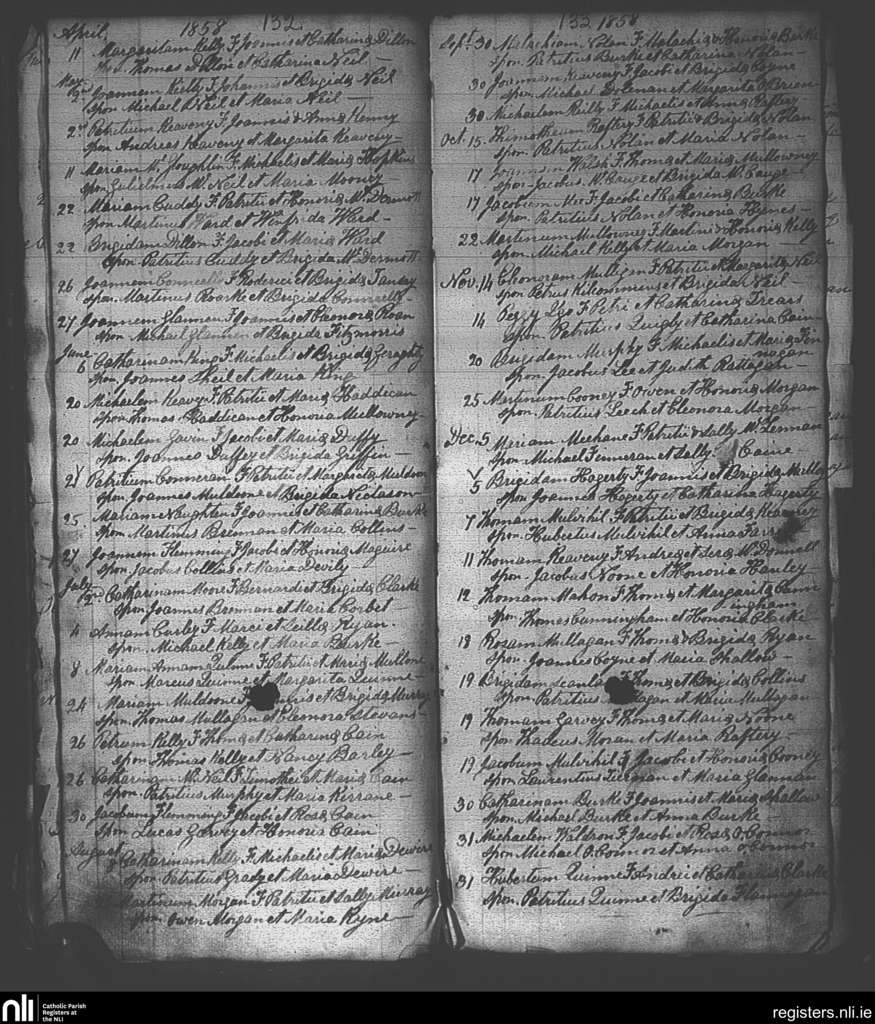 April, 1858 132
11 Margaritam Kelly F Joannis et Catharina Dillon
Thomas Dillon et Catharina Neil -
May 2nd Joannem Kelly F Johannis et Brigida Neil
Spon Michael Neil et Maria Neil -
2nd Patritium Reaveny F Joannis & Anna Kenny
Spon Andreas Reaveny et Margarita Reaveny -
11 Mariam McLoughlin F Michaelis et Maria Hopkins
Spon Gulielmus McNeil et Maria Mooney -
22 Mariam Cuddy F Patritii et Honoria McDermott
Spon Martinus Ward et Winifrida Ward -
22 Brigidam Dillon F Jacobi et Maria Ward
Spon Patritius Cuddy et Brigida McDermott
26 Joannem Conneelly F Roderici et Brigida Tansey
Spon Martinus Roarke et Brigida Conneelly -
27 Joannem Glannen F Joannis et Eleonora Roan
Spon Michael Glannen et Brigida Fitzmorris
June
6 Catharinam King F Michaelis et Brigida Geraghty
Spon Joannes Sheil et Maria King
20 Michaelem Reavey F Patritii et Maria Haddican
Spon Thomas Haddican et Honoria Mullowney -
20 Michaelem Gavin F Jacobi et Maria Duffy
Spon Joannes Duffey et Brigida Griffin -
21 Patritium Conneran F Patritii et Margarita Muldoon
Spon Joannes Muldoone et Brigida
25 Mariam Naughten F Joannis et Catharina Burke
Spon Martinus Brennan et Maria Collins -
27 Joannem Flemming F Jacobi et Honoria Maguire
Spon Jacobus Collins et Maria Devily -
July
2nd Catharinam Moore F Bernardi et Brigida Clarke
Spon Joannes Brennan et Maria Corbet
4 Annam Curley F Marci et Ryan.
Spon Michael Kelly et Maria Burke -
8 Mariam Annam Quinne F Patritii et Maria Mullone
Spon Marcus Quinne et Margarita Quinne -
24 Mariam Muldoone et Brigida Murray
Spon Thomas Mullagan et Eleonora Stevans -
26 Petrum Kelly F Thoma et Catharina Cain
Spon Thomas Kelly et Nancy Barley -
26 Catharinam McNeil F Timothei et Maria Cain
Spon Patritius Murphy et Maria Kirrane -
30 Jacobum Flemming F Jacobi et Rosa Cain
Spon Lucas Garvey et Honoria Cain
August
Catharinam Kelly F Michaelis et Maria Dewire
Spon Patritius Grady et Maria Dewire -
Martinum Morgan F Patritii et Sally Murray
Spon Owen Morgan et Maria Kyne -
132 1858
Sept. 30 Malachiam Nolan F Malachi & Honoria Burke
Spon Patritius Burke et Catharina Nolan -
30 Joannem Reaveny F Jacobi et Brigida Coyne
Spon Michael Dolenan et Margarita O'Brien
30 Michaelem Reilly F Michaelis et Anna Raftery
Oct. 15. Thimotheum Raftery F Patritii & Brigida Nolan
Spon. Patritius Nolan et Maria Nolan -
17 Joannem Walsh F Thoma et Maria Mullowney
Spon - Jacobus et Brigida
17 Jacobum F Jacobi et Catharina Burke
Spon. Patritius Nolan et Honoria Hynes -
22 Martinum Mullowney F Martini & Honoria Kelly
Spon. Michael Kelly et Maria Morgan -
Nov. 14 Eleonoram Mulligan F Patritii et Margarita Neil
Spon Petrus Kilcommins et Brigida Neil -
14 Peggy F Petri et Catharina
Spon. Patritius Quigly et Catharina Cain
20 Brigidam Murphy F Michaelis et Maria Fin
nagan
Spon. Jacobus Lee et Judith Rattagan -
25 Martinum Cooney F Owen et Honoria Morgan
Spon. Patritius Leech et Eleonora Morgan
Dec. 5 Mariam Meehane F Patritii & Sally McLennan
Spon Michael Finneran et Sally Caine
5 Brigidam Hogerty F Joannis et Brigida
Spon Joannes Hogerty et Catharina Hogerty
7 Thomam Mulvihil F Patritii et Brigida
Spon. Hubertus Mulvihil et Anna
11 Thomam Reaveny F Andrea et McDonnell
Spon - Jacobus Noone et Honoria Hanley -
12 Thomam Mahon F Thoma et Margarita Cunn
ingham
Spon Thomas Cunningham et Honoria Clarke
18 Rosam Mullagan F Thoma & Brigida Ryan
Spon. Joannes Coyne et Maria Shallow -
19. Brigidam Scanlan F Thoma et Brigida Collins
Spon. Patritius et Maria Mulligan
19 Thomam Garvey F Thoma et Maria Noone
Spon Thadeus Moran et Maria Raftery.
19 Jacobum Mulvihil F Jacobi et Honoria Cooney
Spon Laurentius et Maria Glannan
30 Catharinam Burke F Joannis et Maria Shallow
Spon. Michael Burke et Anna Burke -
31 Michaelem Waldron F Jacobi et Rosa O'Connor
Spon Michael O'Connor et Anna O'Connor
31 Hubertum Quinne F Andrei et Catharina Clarke
Spon. Patritius Quinne et Brigida Flannagan
nli Catholic Parish
Registers at
the NLI
registers.nli.ie